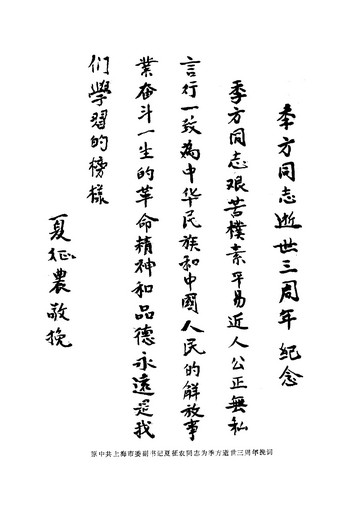 季方同志逝世三周年纪念
季方同志艰苦樸素平易近人公正無私
言行一致為中华民族和中國人民的解放事
業奋斗一生的革命精神和品德永遠是我
们學習的榜樣
夏征農敬挽
原中共上海市委副书记夏征农同志为季方逝世三周年挽词